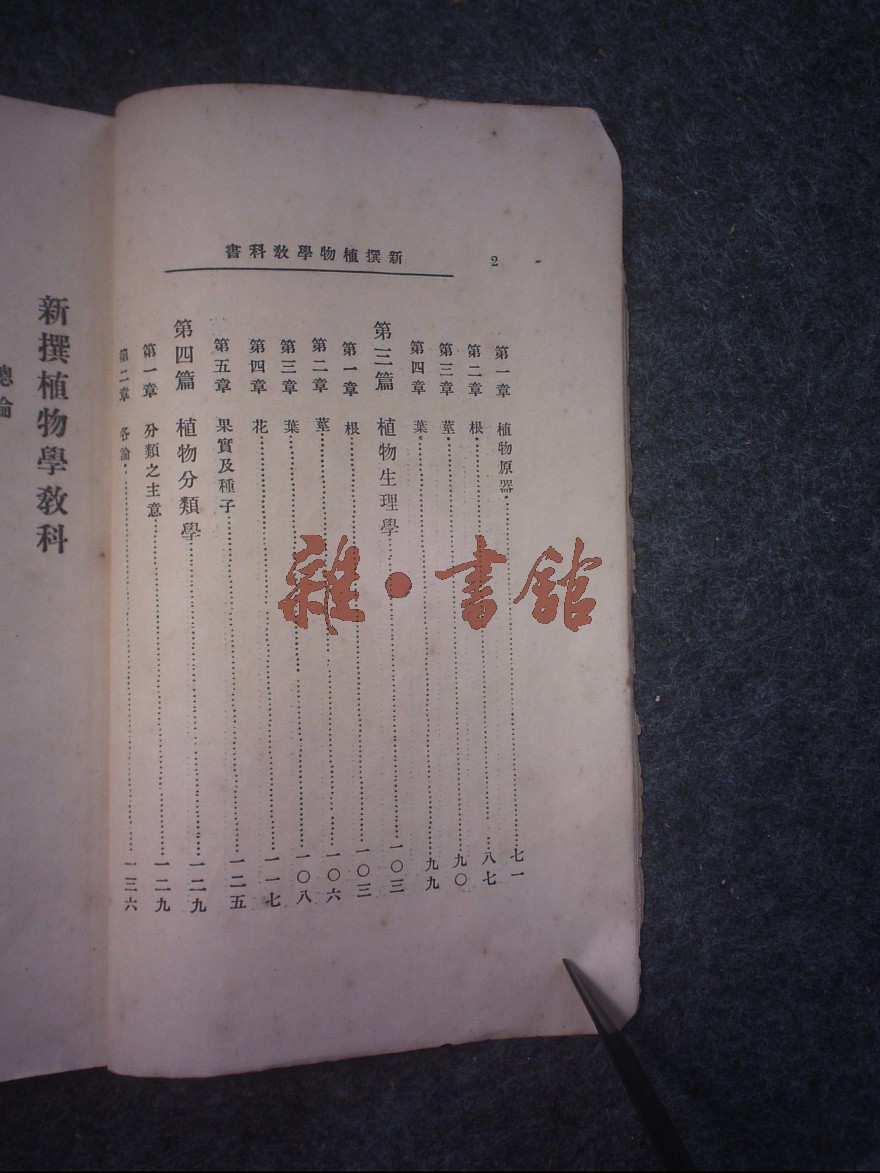 新撰植物學教科書
2
第一章 植物原器 七一
第二章 根 八七
第三章 莖 九〇
第四章 葉 九九
第三篇 植物生理學 一〇三
第一章 根 一〇三
第二章 莖 一〇六
第三章 葉 一〇八
第四章 花 一一七
第五章 果實及種子 一二五
第四篇 植物分類學 一二九
第一章 分類之主意 一二九
第二章 各論 一三六
新撰植物學教科
總論
雜·書館